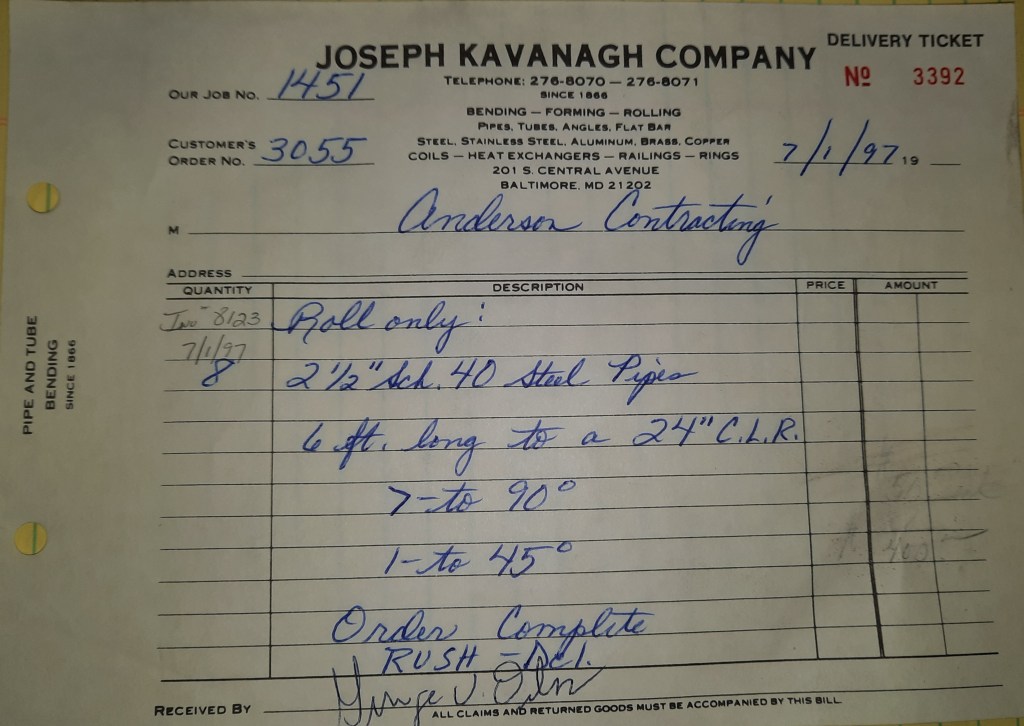 JOSEPH KAVANAGH COMPANY
DELIVERY TICKET
TELEPHONE: 276-8070 — 276-8071
Nº 3392
OUR JOB NO. 1451
SINCE 1866
BENDING — FORMING — ROLLING
PIPES, TUBES, ANGLES, FLAT BAR
CUSTOMER'S ORDER NO. 3055
STEEL, STAINLESS STEEL, ALUMINUM, BRASS, COPPER
COILS — HEAT EXCHANGERS — RAILINGS — RINGS
7/1/97 19
201 S. CENTRAL AVENUE
BALTIMORE, MD 21202
M Anderson Contracting
ADDRESS
QUANTITY DESCRIPTION PRICE AMOUNT
8123 Roll only:
7/1/97
8 2 1/2" Sch. 40 Steel Pipes
6 ft. long to a 24" C.L.R.
7-to 90°
1-to 45°
Order Complete
RUSH - Del.
RECEIVED BY
ALL CLAIMS AND RETURNED GOODS MUST BE ACCOMPANIED BY THIS BILL
PIPE AND TUBE
BENDING
SINCE 1866